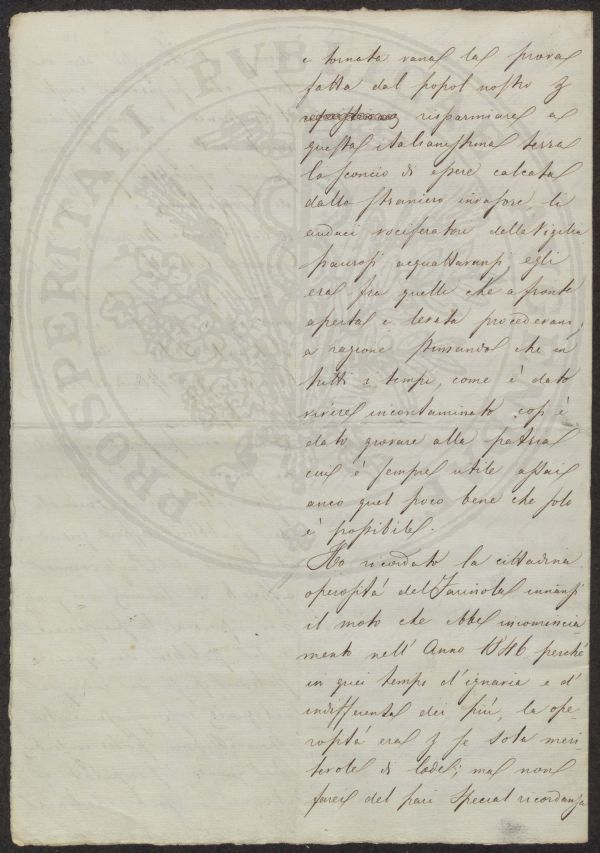 PROSPERITATI PVBLI
e tornata vana la prova
fatta dal popol nostro p
risparmiare a
questa italianissima terra
lo sconcio di essere calcata
dallo straniero invasore li
audaci vociferatori della vigilia
paurosi acquattavansi egli
era fra quelli che a fronte
aperta e levata procedevan,
a ragione stimando che in
tutti i tempi, come è dato
vivere incontaminato così è
dato giovare alla patria
cui è sempre utile assai
anco quel poco bene che solo
è possibile.
Ho ricordato la cittadina
operosità del Farinola innanzi
il moto che ebbe incomincia
mento nell' Anno 1846 perché
in quei tempi d'ignavia e d'
indifferenza dei più, la ope-
rosità era p se sola meri-
tevole di lode; ma non
farei del pari special ricordanza